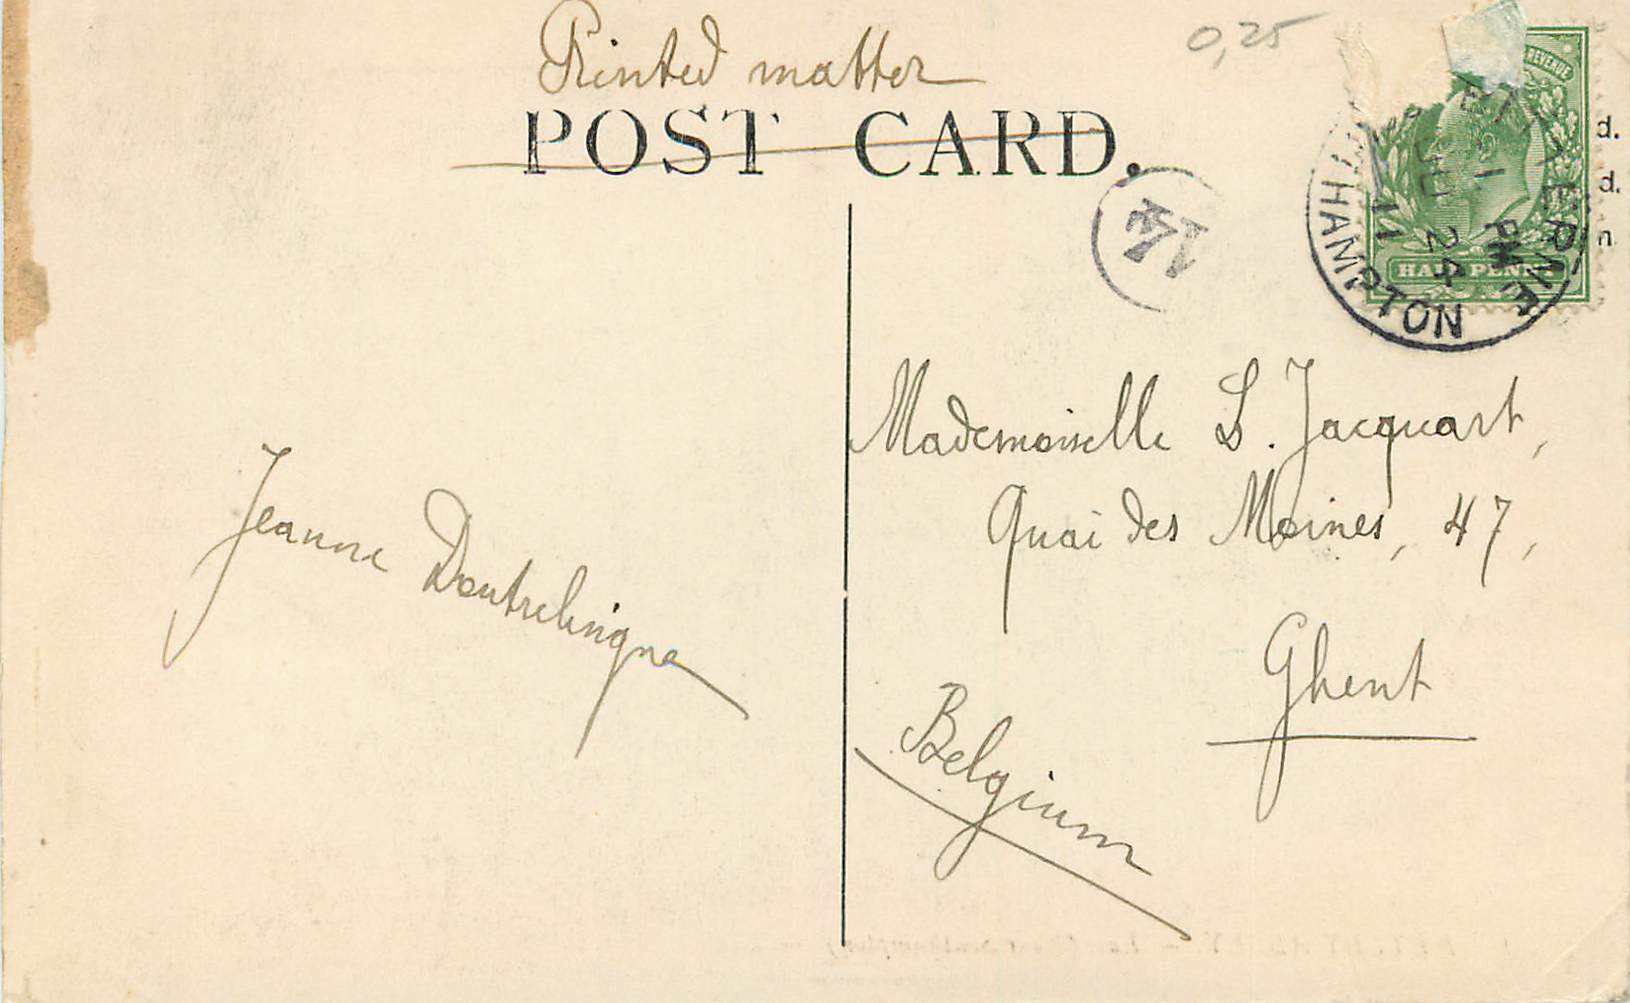 Printed matter
0,25
POST CARD.
REVENUE
d.
d.
n
HALF PENNY
1 PM
JU 24
11
THAMPTON
14
Mademoiselle L. Jacquart,
Quai des Moines, 47,
Ghent
Belgium
Jeanne Doutreligne